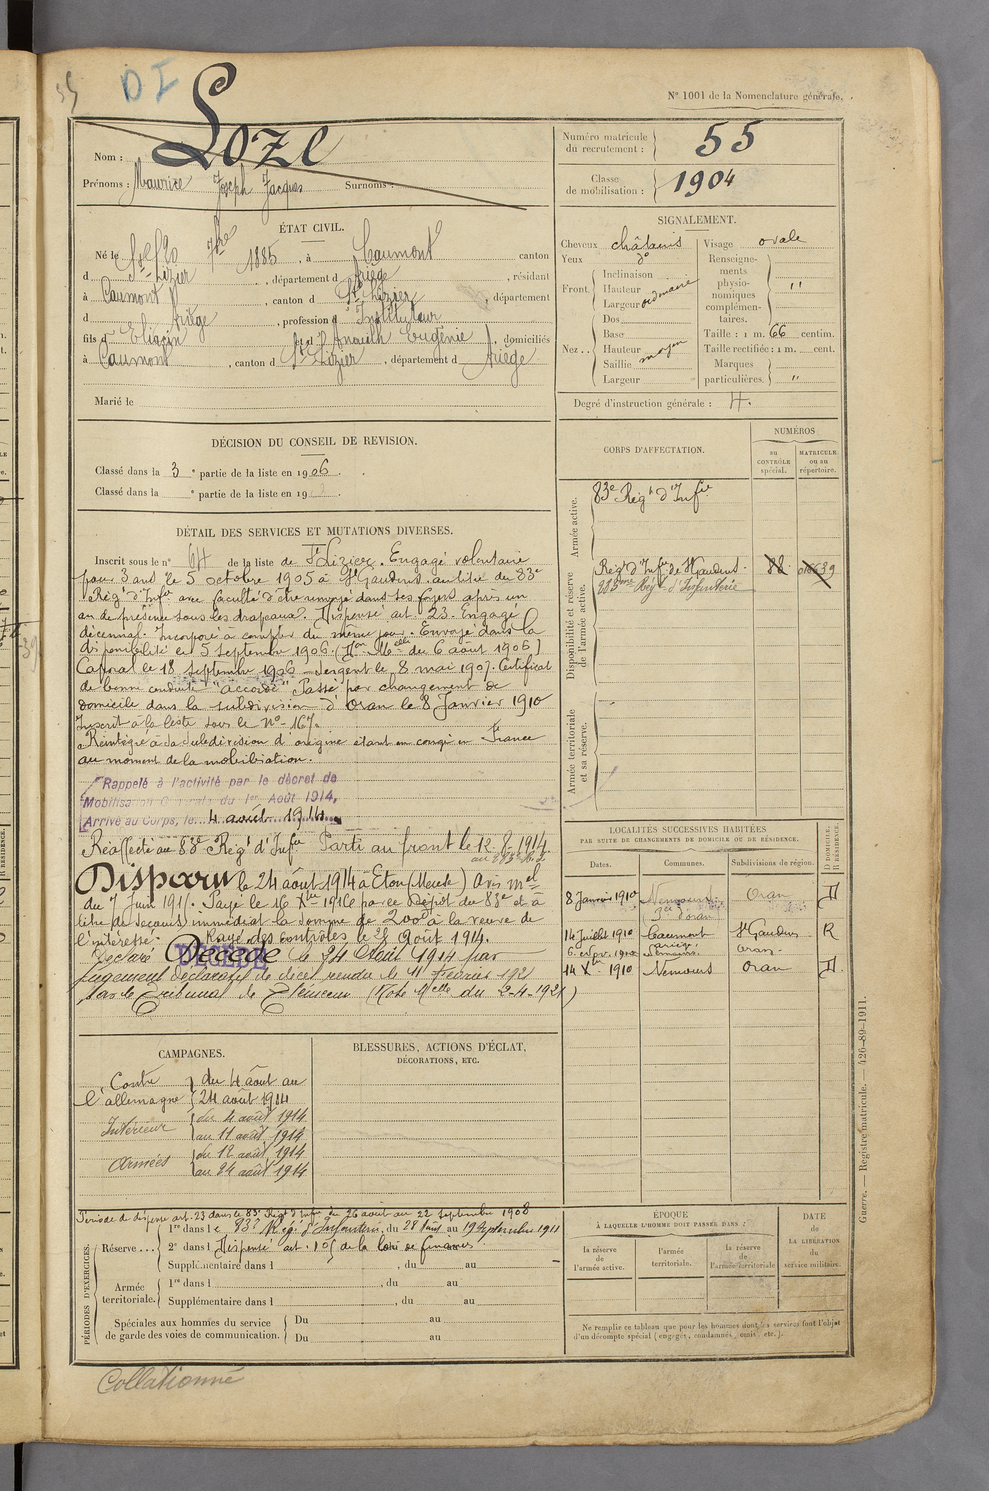 DI
N° 1001 de la Nomenclature générale.
Nom : Loze
Prénoms : Maurice Joseph Jacques Surnoms :
Numéro matricule du recrutement : 55
Classe de mobilisation : 1904
ÉTAT CIVIL.
Né le 7bre 1885, à Caumont canton
d St-Lizier, département d Ariège, résidant
à Caumont, canton d St Lizier, département
d Ariège, profession d Instituteur
fils d et d Anouilh Eugénie, domiciliés
à Caumont, canton d St Lizier, département d Ariège
Marié le
SIGNALEMENT.
Cheveux châtains Visage ovale
Yeux d°
Front. Inclinaison
Hauteur ordinaire
Largeur
Nez .. Dos
Base
Hauteur moyen
Saillie
Largeur
Renseignements physionomiques complémentaires. "
Taille : 1 m. 66 centim.
Taille rectifiée : 1 m. cent.
Marques particulières. "
Degré d'instruction générale : 4.
DÉCISION DU CONSEIL DE REVISION.
Classé dans la 3e partie de la liste en 1906.
Classé dans la e partie de la liste en 19
CORPS D'AFFECTATION.
NUMÉROS
au CONTRÔLE spécial.
MATRICULE ou au répertoire.
Armée active.
83e Régt d'Infie
Disponibilité et réserve de l'armée active.
Régt d'Infie de St Gaudens. 88
283ème Régt d'Infanterie
Armée territoriale et sa réserve.
DÉTAIL DES SERVICES ET MUTATIONS DIVERSES.
Inscrit sous le n° 64 de la liste de St Lizier. Engagé volontaire
pour 3 ans le 5 octobre 1905 à St Gaudens. au titre du 83e
Régt d'Infie avec faculté d'être renvoyé dans ses foyers après un
an de présence sous les drapeaux. Dispensé art. 23. Engagé
décennal. Incorporé à compter du même jour. Envoyé dans la
disponibilité le 5 septembre 1906. (Melle du 6 août 1906)
Caporal le 18 septembre 1906. Sergent le 8 mai 1907. Certificat
de bonne conduite "accordé" Passé par changement de
domicile dans la subdivision d'Oran le 8 Janvier 1910
Inscrit à la liste sous le N° 167.
Réintégré à sa subdivision d'origine étant en congé en France
au moment de la mobilisation.
Rappelé à l'activité par le décret de
Mobilisation Générale du 1er Août 1914,
Arrivé au Corps, le 4 août 1914
Réaffecté au 83e Régt d'Infie Parti au front le 12-8-1914.
Disparu le 24 août 1914 à Eton (Meuse) Avis mel
du 7 Juin 191 Payé le 16 Xbre 1916 par le Dépôt du 83e et à
titre de secours immédiat la somme de 200f à la veuve de
l'intéressé. Rayé des contrôles le 25 Août 1914.
DÉCÉDÉ
Déclaré Décédé le 24 Août 1914 par
Jugement déclaratif de décès rendu le 11 février 192
par le Tribunal de Tlemcen (Note Melle du 2-4-1921)
LOCALITÉS SUCCESSIVES HABITÉES
PAR SUITE DE CHANGEMENTS DE DOMICILE OU DE RÉSIDENCE.
Dates. Communes. Subdivisions de région. D DOMICILE. R RÉSIDENCE.
8 Janvier 1910 Nemours d'oran Oran D
14 Juillet 1910 Caumont ariège St Gaudens R
1910 Nemours Oran
14 Xbre 1910 Nemours Oran D
CAMPAGNES.
Contre l'allemagne du 4 août au 24 août 1914
Intérieur du 4 août 1914 au 11 août 1914
Armées du 12 août 1914 au 24 août 1914
BLESSURES, ACTIONS D'ÉCLAT,
DÉCORATIONS, ETC.
PÉRIODES D'EXERCICES.
Période de dispense art. 23 dans le 83e Régt d'Infie du 26 août au 22 septembre 1908
Réserve ... 1re dans le 83e Rég. d'Infanterie, du 28 au 19 septembre 1911
2e dans l Dispensé art. de la loi de finances
Supplémentaire dans l , du au
Armée territoriale. 1re dans l , du au
Supplémentaire dans l , du au
Spéciales aux hommes du service de garde des voies de communication. Du au
Du au
ÉPOQUE
À LAQUELLE L'HOMME DOIT PASSER DANS :
la réserve de l'armée active.
l'armée territoriale.
la réserve de l'armée territoriale
DATE DE LA LIBÉRATION du service militaire.
Ne remplir ce tableau que pour les hommes dont les services font l'objet
d'un décompte spécial (engagés, condamnés, omis, etc.).
Guerre. — Registre matricule. — 426-89-1911.
Collationné